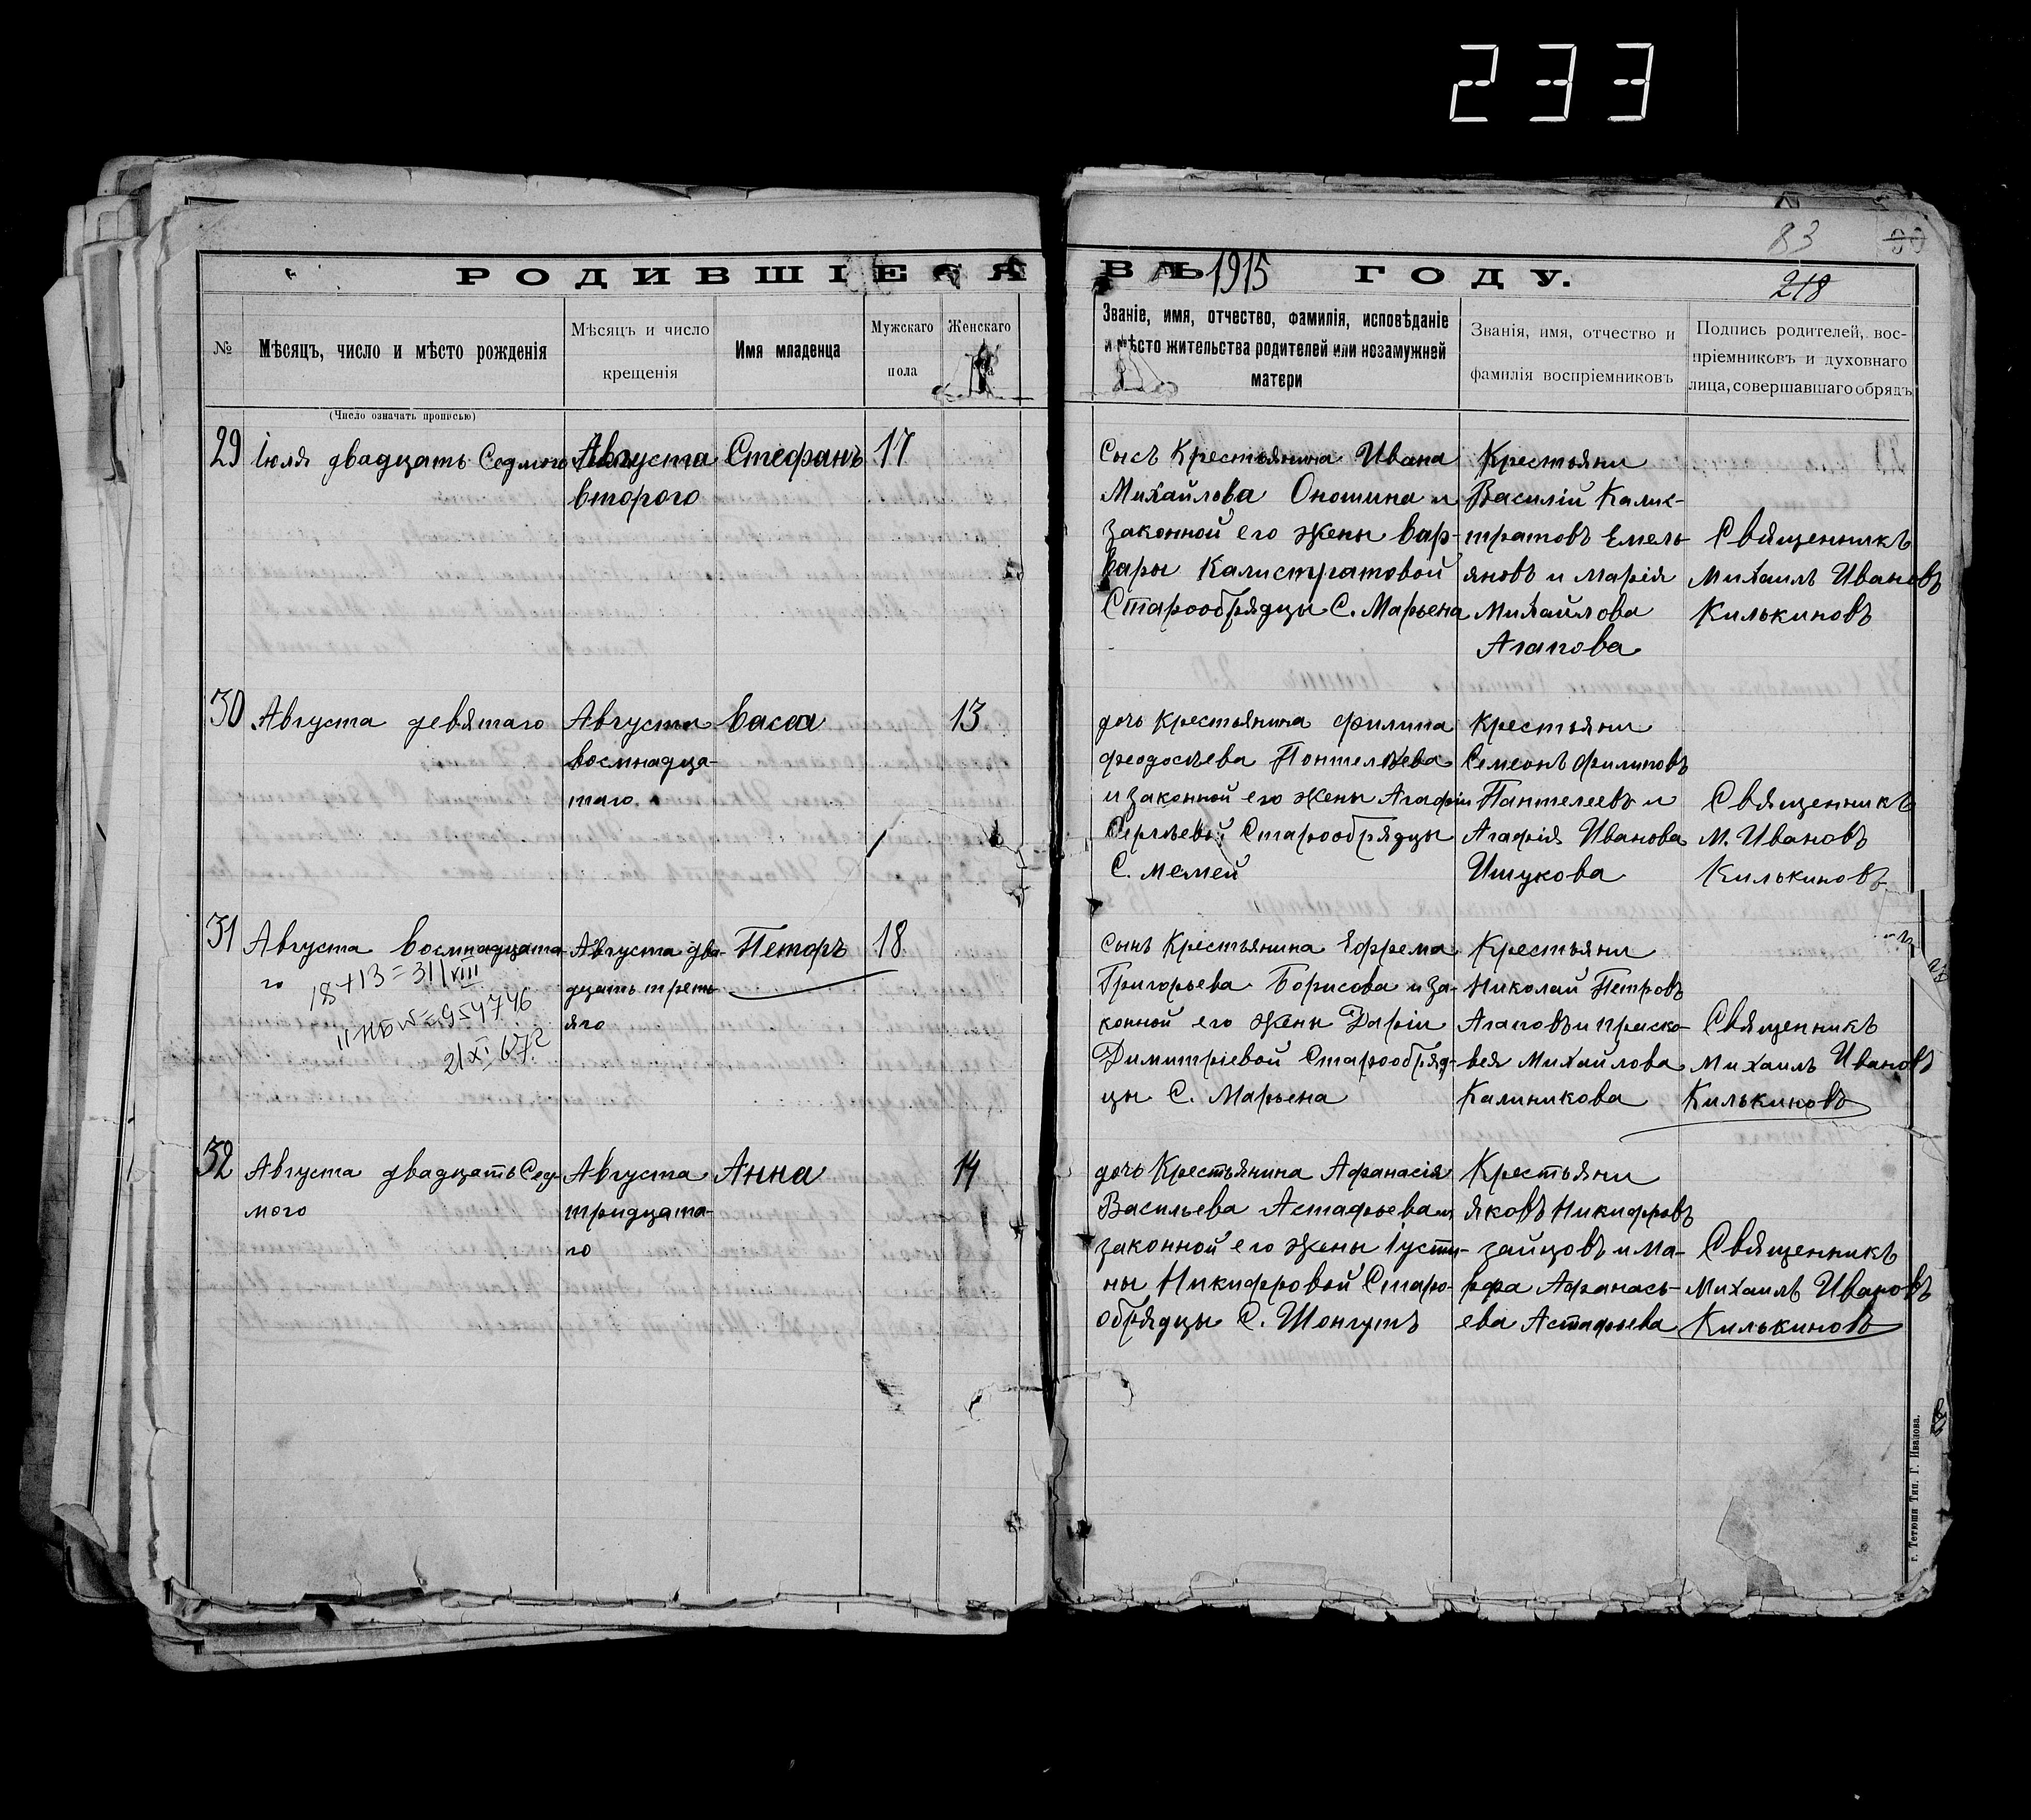 233
83
РОДИВШІЕСЯ ВЪ 1915 ГОДУ.
218
№
Мѣсяцъ, число и мѣсто рожденія
(Число означать прописью)
Мѣсяцъ и число
крещенія
Имя младенца
Мужскаго
пола
Женскаго
Званіе, имя, отчество, фамилія, исповѣданіе
и мѣсто жительства родителей или незамужней
матери
Званія, имя, отчество и
фамилія воспріемниковъ
Подпись родителей, вос-
пріемниковъ и духовнаго
лица, совершавшаго обрядъ
29
Іюля двадцать Седмого
Августа
второго
Стефанъ
17
Сынъ Крестьянина Ивана
Михайлова Оношина и
законной его жены Вар-
вары Калистратовой
Старообрядцы С. Марьена
Крестьяни
Василій Калис-
тратовъ Емель-
яновъ и Марія
Михайлова
Агапова
Священникъ
Михаилъ Ивановъ
Килькиновъ
30
Августа девятаго
Августа
восмнадца-
таго
Васса
13
дочь крестьянина Филипа
Феодосѣева Пантелѣева
и законной его жены Агафіи
Сергѣевой Старообрядцы
С. Мемей
Крестьяни
Семеонъ Филиповъ
Пантелеевъ и
Агафія Иванова
Ишукова
Священникъ
М. Ивановъ
Килькиновъ
31
Августа восмнадцата
го
18+13=31/VIII
II-НБ №=954746
21 XI 67г
Августа два-
дцать треть-
яго
Петоръ
18
сынъ Крестьянина Ефрема
Григорьева Борисова и за-
конной его жены Даріи
Димитріевой Старообряд-
цы С. Марьена
Крестьяни
Николай Петровъ
Агаповъ и Праско-
вея Михайлова
Калиникова
Священникъ
Михаилъ Ивановъ
Килькиновъ
32
Августа двадцать Сед-
мого
Августа
тридцата-
го
Анна
14
дочь Крестьянина Афанасія
Васильева Астафьева и
законной его жены Іусти-
ны Никифровой Старо-
обрядцы С. Шонгутъ
Крестьяни
Яковъ Никифровъ
Зайцовъ и Ма-
рфа Афанась-
ева Астафьева
Священникъ
Михаилъ Ивановъ
Килькиновъ
г. Тетюши Тип. Г. Ивадова.